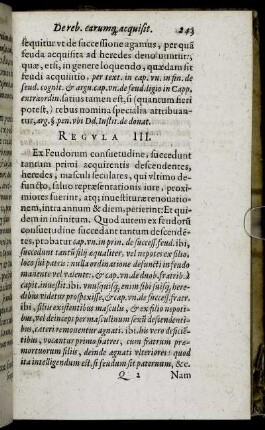 De reb. earumq́; acquisit. 243
sequitur vt de successione agamus, per quā
feuda acquisita ad heredes deuoluuntur,
quæ, etsi, in genere loquendo, quædam sit
feudi acquisitio, per text. in cap. vn. in fin. de
feud. cognit. & argu. cap. vn. de feud. ligio in Capp.
extraordin. satius tamen est, si (quantum fieri
potest,) rebus nomina specialia attribuan-
tur, arg. §. pen. vbi Dd. Instit. de donat.
REGVLA III.
Ex Feudorum consuetudine, succedunt
tantum primi acquirentis descendentes,
heredes, masculi seculares, qui vltimo de-
functo, saluo repræsentationis iure, proxi-
miores fuerint, atq; inuestituræ renouatio-
nem, intra annum & diem, petierint; Et qui-
dem in infinitum. Quod autem ex feudorū
consuetudine succedant tantum descendē-
tes, probatur cap. vn. in prin. de success. feud. ibi,
succedunt tantū filij æqualiter, vel nepotes ex filio,
loco sui patris: nulla ordinatione defuncti in feudo
manente vel valente: & cap. vn. de duob. fratrib. à
capit. inuestit. ibi. vnusquisq; enim sibi suisq; here-
dibus videtur prospexisse, & cap. vn. de success. fratr.
ibi, filijs existentibus masculis, & ex filio nepoti-
bus, vel deinceps per masculinum sexū descendenti-
bus, cæteri remouentur agnati. ibi. his vero deficiē-
tibus, vocantur primo fratres, cum fratrum præ-
mortuorum filijs, deinde agnati vlteriores: quod
ita intelligendum est, si feudum sit paternum, &c.
Q 2 Nam